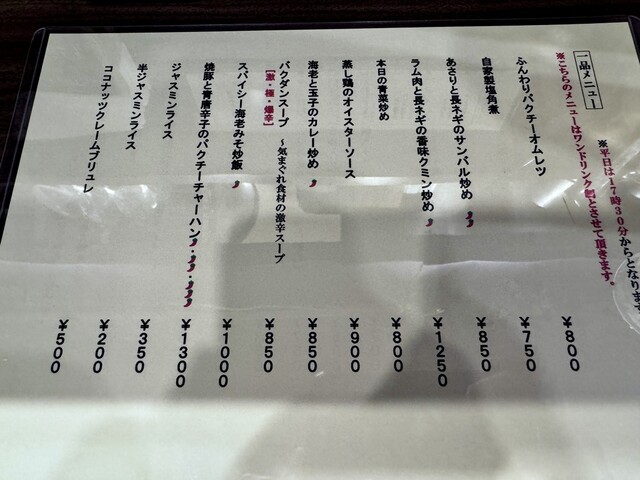 一品メニュー
※平日は17時30分からとなります
※こちらのメニューはワンドリンク制とさせて頂きます。
ふんわりパクチーオムレツ ¥800
自家製塩角煮 ¥750
あさりと長ネギのサンバル炒め ¥850
ラム肉と長ネギの香味クミン炒め ¥1250
本日の青菜炒め ¥800
蒸し鶏のオイスターソース ¥900
海老と玉子のカレー炒め ¥850
バクダンスープ ～気まぐれ食材の激辛スープ ¥850
【激・極・爆辛】
スパイシー海老みそ炒飯 ¥1000
焼豚と青唐辛子のパクチーチャーハン ¥1300
ジャスミンライス ¥350
半ジャスミンライス ¥200
ココナッツクレームブリュレ ¥500